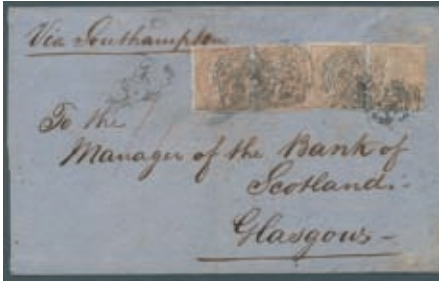 Via Southampton
To the
Manager of the Bank of
Scotland.-
Glasgow-